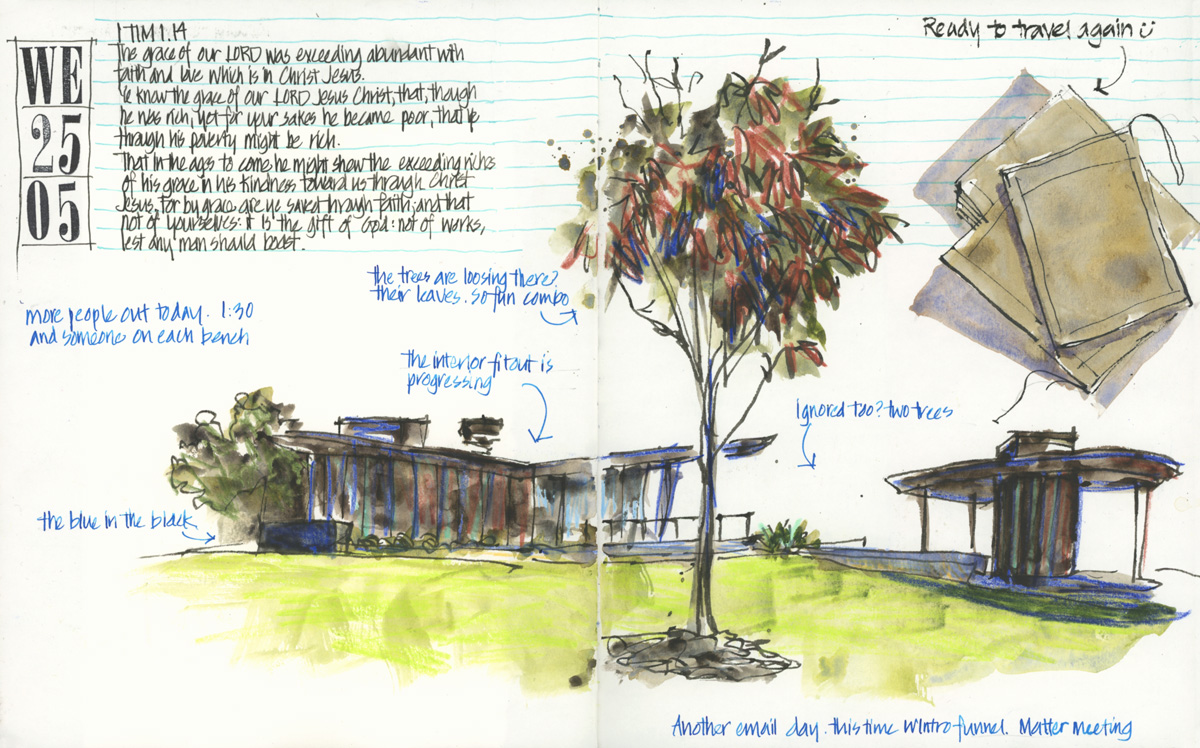 WE
25
05
1 TIM 1.14
The grace of our LORD was exceeding abundant with
faith and love which is in Christ Jesus.
Ye know the grace of our LORD Jesus Christ, that, though
he was rich, yet for your sakes he became poor, that ye
through his poverty might be rich.
That in the ages to come he might show the exceeding riches
of his grace in his kindness toward us through Christ
Jesus, for by grace are ye saved through faith; and that
not of yourselves: it is the gift of God: not of works,
lest any man should boast.
Ready to travel again
the trees are loosing there?
their leaves. so fun combo
more people out today. 1:30
and someone on each bench
the interior fitout is
progressing
Ignored too? two trees
the blue in the black
Another email day. this time w/intro funnel. Matter meeting